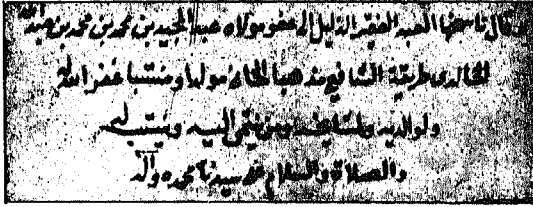 وقال ناسخها العبد الفقير الذليل الى عفو مولاه عبد المجيد بن محمد بن محمد بن عبد الله
الخالدى طريقة الشافعى مذهبا الخانى مولدا ومنتسبا غفر الله له
ولوالديه ولمشايخه ومن ينتمى اليه وينتسب له
والصلاة والسلام على سيدنا محمد وآله